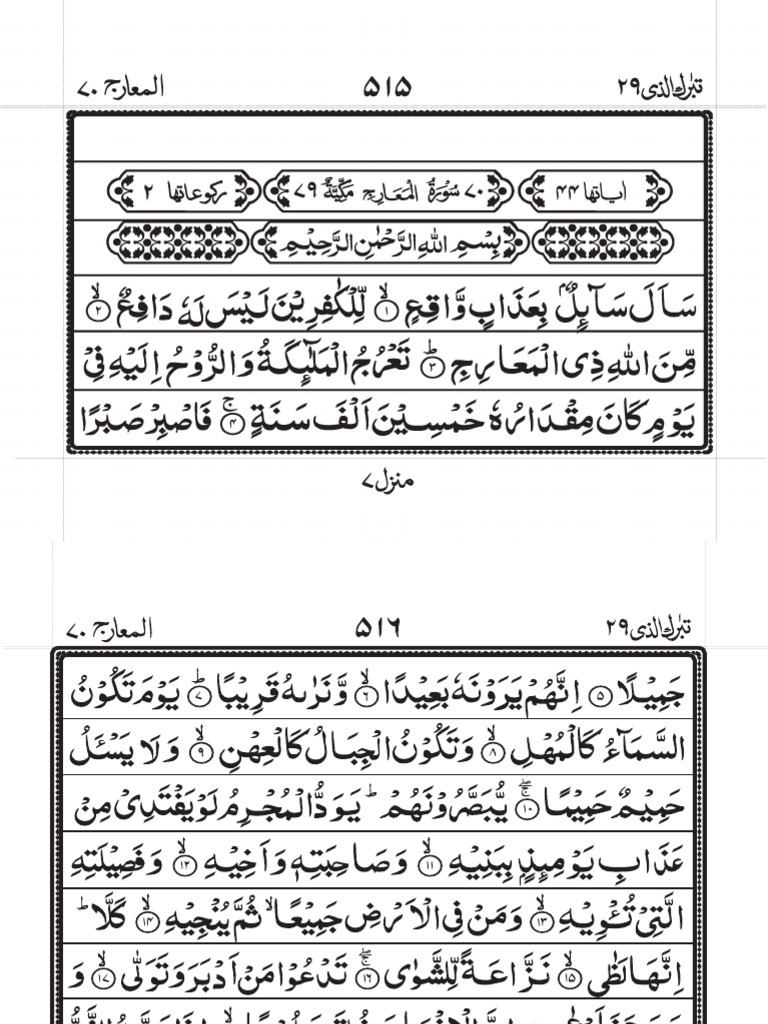 تبٰرك الذی ۲۹ ۵۱۵ المعارج ۷۰
اٰیاتها ۴۴ ۷۰ سُوْرَةُ الْمَعَارِجِ مَكِّيَّةٌ ۷۹ ركوعاتها ۲
بِسْمِ اللّٰهِ الرَّحْمٰنِ الرَّحِيْمِ
سَاَلَ سَآئِلٌۢ بِعَذَابٍ وَّاقِعٍ ۙ﴿۱﴾ لِّلْكٰفِرِيْنَ لَيْسَ لَهٗ دَافِعٌ ۙ﴿۲﴾
مِّنَ اللّٰهِ ذِی الْمَعَارِجِ ؕ﴿۳﴾ تَعْرُجُ الْمَلٰٓئِكَةُ وَالرُّوْحُ اِلَيْهِ فِیْ
يَوْمٍ كَانَ مِقْدَارُهٗ خَمْسِيْنَ اَلْفَ سَنَةٍ ۚ﴿۴﴾ فَاصْبِرْ صَبْرًا
منزل ۷
تبٰرك الذی ۲۹ ۵۱۶ المعارج ۷۰
جَمِيْلًا ﴿۵﴾ اِنَّهُمْ يَرَوْنَهٗ بَعِيْدًا ۙ﴿۶﴾ وَّنَرٰىهُ قَرِيْبًا ؕ﴿۷﴾ يَوْمَ تَكُوْنُ
السَّمَآءُ كَالْمُهْلِ ۙ﴿۸﴾ وَتَكُوْنُ الْجِبَالُ كَالْعِهْنِ ۙ﴿۹﴾ وَلَا يَسْـَٔلُ
حَمِيْمٌ حَمِيْمًا ۚۖ﴿۱۰﴾ يُّبَصَّرُوْنَهُمْ ؕ يَوَدُّ الْمُجْرِمُ لَوْ يَفْتَدِیْ مِنْ
عَذَابِ يَوْمِئِذٍۭ بِبَنِيْهِ ۙ﴿۱۱﴾ وَصَاحِبَتِهٖ وَاَخِيْهِ ۙ﴿۱۲﴾ وَفَصِيْلَتِهِ
الَّتِیْ تُـْٔوِيْهِ ۙ﴿۱۳﴾ وَمَنْ فِی الْاَرْضِ جَمِيْعًا ۙ ثُمَّ يُنْجِيْهِ ۙ﴿۱۴﴾ كَلَّا ؕ
اِنَّهَا لَظٰی ۙ﴿۱۵﴾ نَزَّاعَةً لِّلشَّوٰی ۚۖ﴿۱۶﴾ تَدْعُوْا مَنْ اَدْبَرَ وَتَوَلّٰی ۙ﴿۱۷﴾ وَ